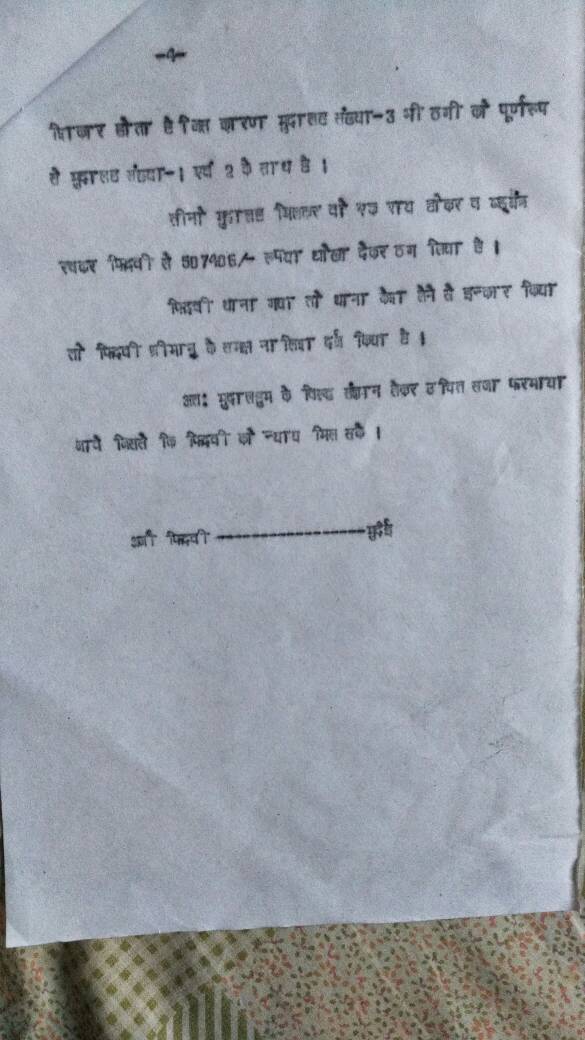 -4-
होता है जिस कारण मुदालह संख्या-3 भी ठगी को पूर्णरूप
से मुदालह संख्या-1 एवं 2 के साथ है ।
तीनो मुदालह मिलकर वो एक राय होकर व षड्यंत्र
रचकर फिदवी से 507406/- रूपया धोखा देकर ठग लिया है ।
फिदवी थाना गया तो थाना केश लेने से इन्कार किया
तो फिदवी श्रीमान् के समक्ष नालिश दर्ज किया है ।
अतः मुदालहुम के विरूद्ध संज्ञान लेकर उचित सजा फरमाया
जावे जिससे कि फिदवी को न्याय मिल सके ।
अर्जी फिदवी -----------------मुदैई